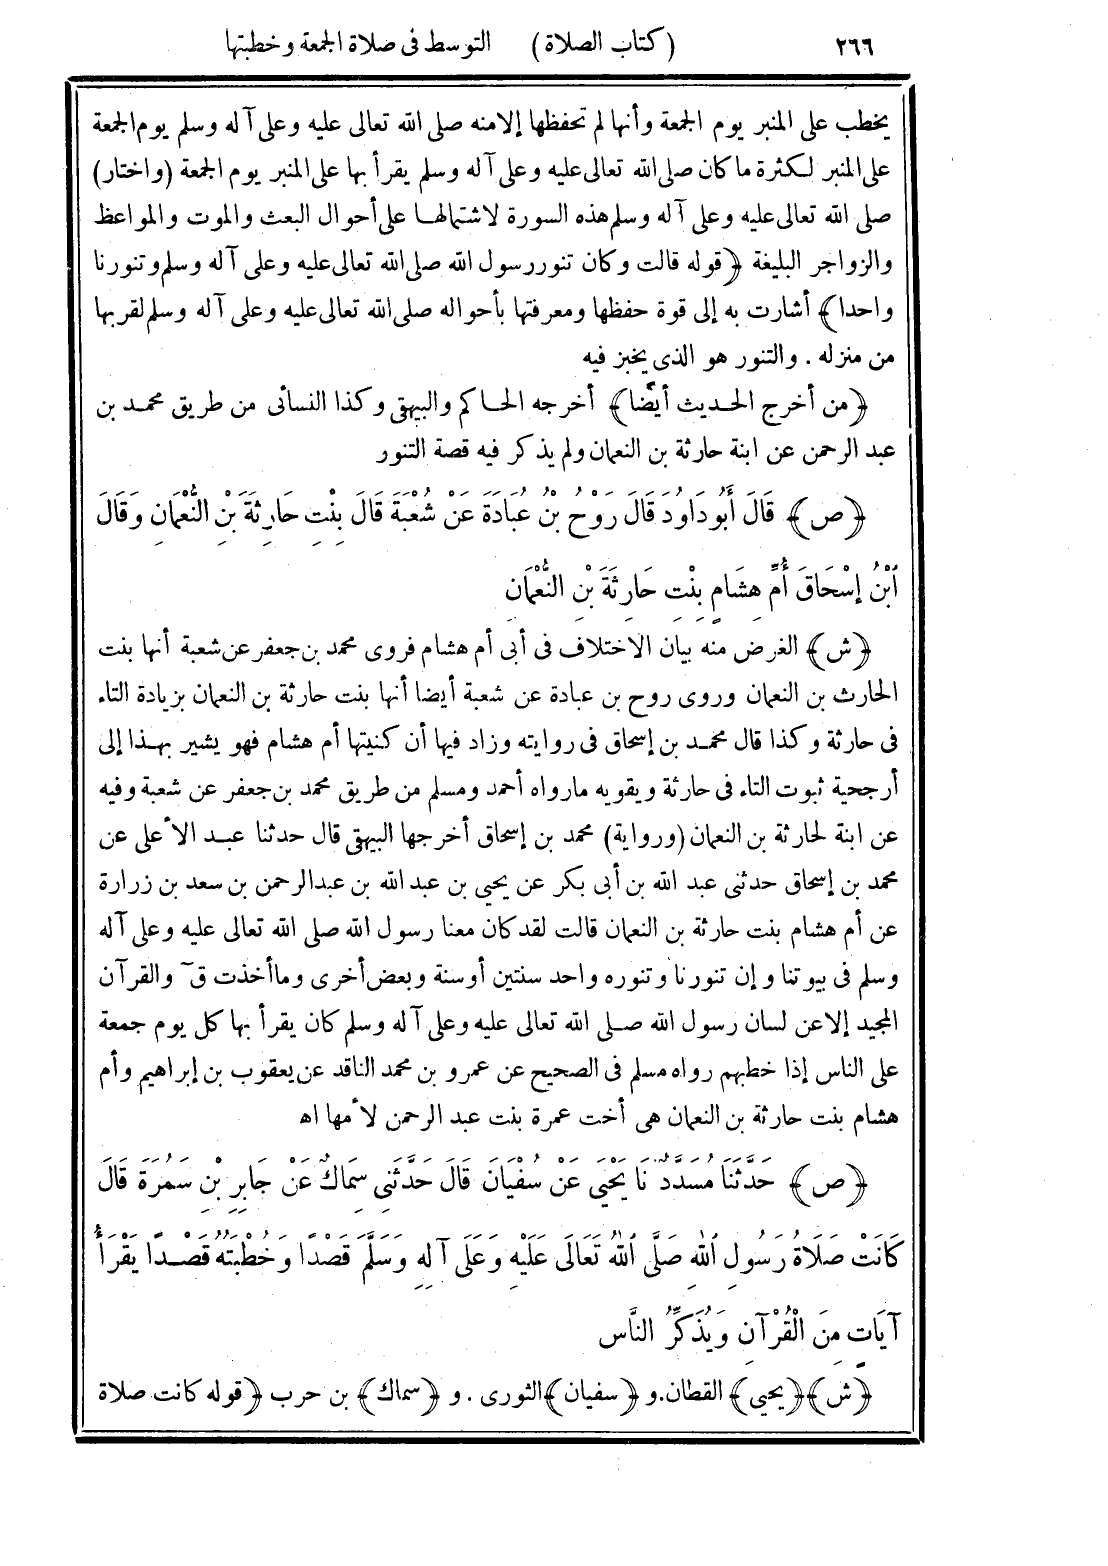 ٢٦٦ (كتاب الصلاة) التوسط فى صلاة الجمعة وخطبتها
يخطب على المنبر يوم الجمعة وأنها لم تحفظها إلا منه صلى الله تعالى عليه وعلى آله وسلم يوم الجمعة
على المنبر لكثرة ما كان صلى الله تعالى عليه وعلى آله وسلم يقرأ بها على المنبر يوم الجمعة (واختار)
صلى الله تعالى عليه وعلى آله وسلم هذه السورة لاشتمالها على أحوال البعث والموت والمواعظ
والزواجر البليغة ﴿قوله قالت وكان تنور رسول الله صلى الله تعالى عليه وعلى آله وسلم وتنورنا
واحدا﴾ أشارت به إلى قوة حفظها ومعرفتها بأحواله صلى الله تعالى عليه وعلى آله وسلم لقربها
من منزله . والتنور هو الذى يخبز فيه
﴿من أخرج الحديث أيضًا﴾ أخرجه الحاكم والبيهقى وكذا النسائى من طريق محمد بن
عبد الرحمن عن ابنة حارثة بن النعمان ولم يذكر فيه قصة التنور
﴿ص﴾ قَالَ أَبُو دَاوُدَ قَالَ رَوْحُ بْنُ عُبَادَةَ عَنْ شُعْبَةَ قَالَ بِنْتِ حَارِثَةَ بْنِ النُّعْمَانِ وَقَالَ
اَبْنُ إِسْحَاقَ أُمِّ هِشَامٍ بِنْتِ حَارِثَةَ بْنِ النُّعْمَانِ
﴿ش﴾ الغرض منه بيان الاختلاف فى أبى أم هشام فروى محمد بن جعفر عن شعبة أنها بنت
الحارث بن النعمان وروى روح بن عبادة عن شعبة أيضا أنها بنت حارثة بن النعمان بزيادة التاء
فى حارثة وكذا قال محمد بن إسحاق فى روايته وزاد فيها أن كنيتها أم هشام فهو يشير بهذا إلى
أرجحية ثبوت التاء فى حارثة ويقويه مارواه أحمد ومسلم من طريق محمد بن جعفر عن شعبة وفيه
عن ابنة لحارثة بن النعمان (ورواية) محمد بن إسحاق أخرجها البيهقى قال حدثنا عبد الأعلى عن
محمد بن إسحاق حدثنى عبد الله بن أبى بكر عن يحيى بن عبد الله بن عبدالرحمن بن سعد بن زرارة
عن أم هشام بنت حارثة بن النعمان قالت لقد كان معنا رسول الله صلى الله تعالى عليه وعلى آله
وسلم فى بيوتنا وإن تنورنا وتنوره واحد سنتين أوسنة وبعض أخرى وما أخذت قۤ والقرآن
المجيد إلا عن لسان رسول الله صلى الله تعالى عليه وعلى آله وسلم كان يقرأ بها كل يوم جمعة
على الناس إذا خطبهم رواه مسلم فى الصحيح عن عمرو بن محمد الناقد عن يعقوب بن إبراهيم وأم
هشام بنت حارثة بن النعمان هى أخت عمرة بنت عبد الرحمن لأمها اه
﴿ص﴾ حَدَّثَنَا مُسَدَّدٌ نَا يَحْيَى عَنْ سُفْيَانَ قَالَ حَدَّثَنِى سِمَاكٌ عَنْ جَابِرِ بْنِ سَمُرَةَ قَالَ
كَانَتْ صَلَاةُ رَسُولِ اَللهِ صَلَّى اَللهُ تَعَالَى عَلَيْهِ وَعَلَى آلِهِ وَسَلَّمَ قَصْدًا وَخُطْبَتُهُ قَصْدًا يَقْرَأُ
آيَاتٍ مِنَ الْقُرْآنِ وَيُذَكِّرُ النَّاسَ
﴿ش﴾ ﴿يحيى﴾ القطان. و ﴿سفيان﴾ الثورى . و ﴿سماك﴾ بن حرب ﴿قوله كانت صلاة